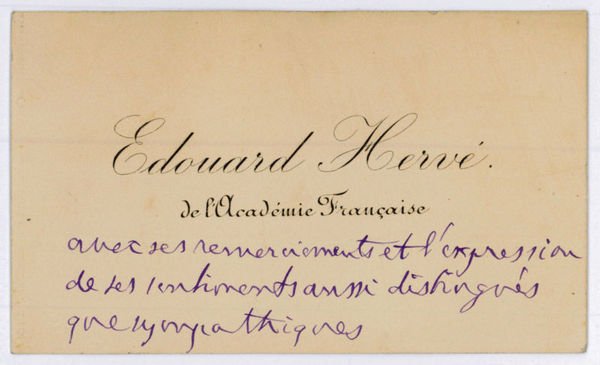 Edouard Hervé.
de l'Académie Française
avec ses remerciements et l'expression
de ses sentiments aussi distingués
que sympathiques